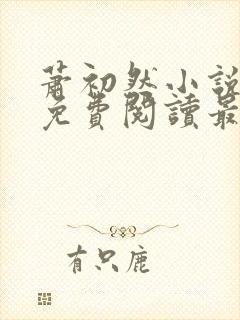 蕭初然小說
免費閱讀最
有只鹿